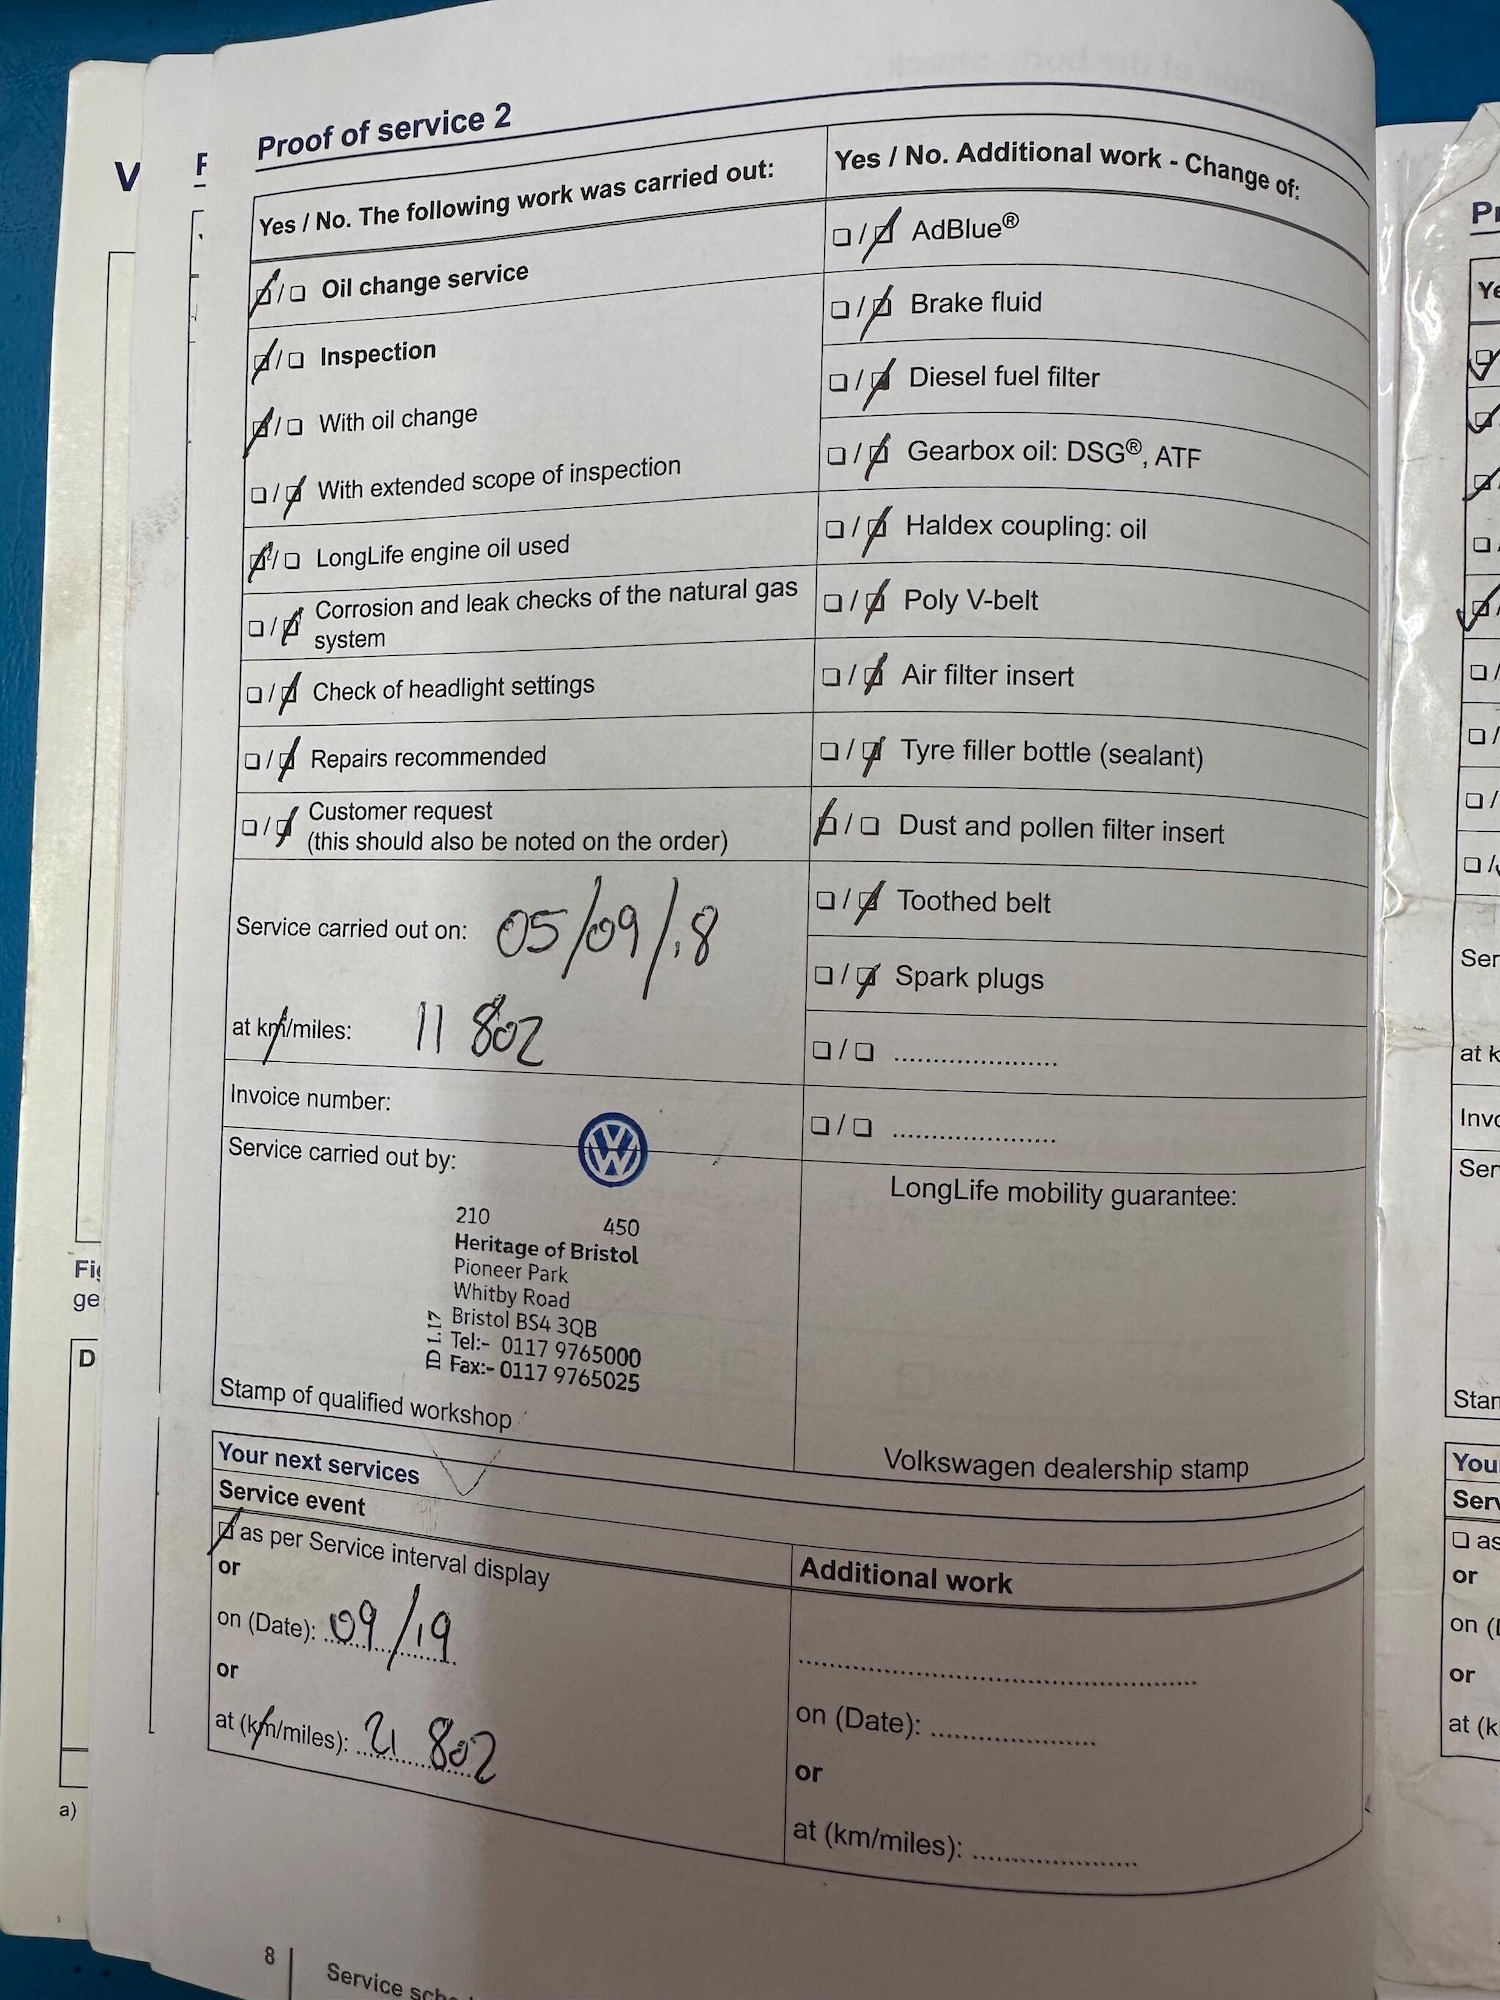 Proof of service 2
Yes / No. The following work was carried out:
☑ / ☐ Oil change service
☑ / ☐ Inspection
☑ / ☐ With oil change
☐ / ☑ With extended scope of inspection
☑ / ☐ LongLife engine oil used
☐ / ☑ Corrosion and leak checks of the natural gas
system
☐ / ☑ Check of headlight settings
☐ / ☑ Repairs recommended
☐ / ☑ Customer request
(this should also be noted on the order)
Service carried out on: 05/09/18
at km/miles: 11 802
Invoice number:
Service carried out by:
210 450
Heritage of Bristol
Pioneer Park
Whitby Road
Bristol BS4 3QB
Tel:- 0117 9765000
Fax:- 0117 9765025
Stamp of qualified workshop
Yes / No. Additional work - Change of:
☐ / ☑ AdBlue®
☐ / ☑ Brake fluid
☐ / ☑ Diesel fuel filter
☐ / ☑ Gearbox oil: DSG®, ATF
☐ / ☑ Haldex coupling: oil
☐ / ☑ Poly V-belt
☐ / ☑ Air filter insert
☐ / ☑ Tyre filler bottle (sealant)
☑ / ☐ Dust and pollen filter insert
☐ / ☑ Toothed belt
☐ / ☑ Spark plugs
☐ / ☐ ......................
☐ / ☐ ......................
LongLife mobility guarantee:
Volkswagen dealership stamp
Your next services
Service event
☑ as per Service interval display
or
on (Date): 09/19
or
at (km/miles): 21 802
Additional work
on (Date): ......................
or
at (km/miles): ......................
8
Service